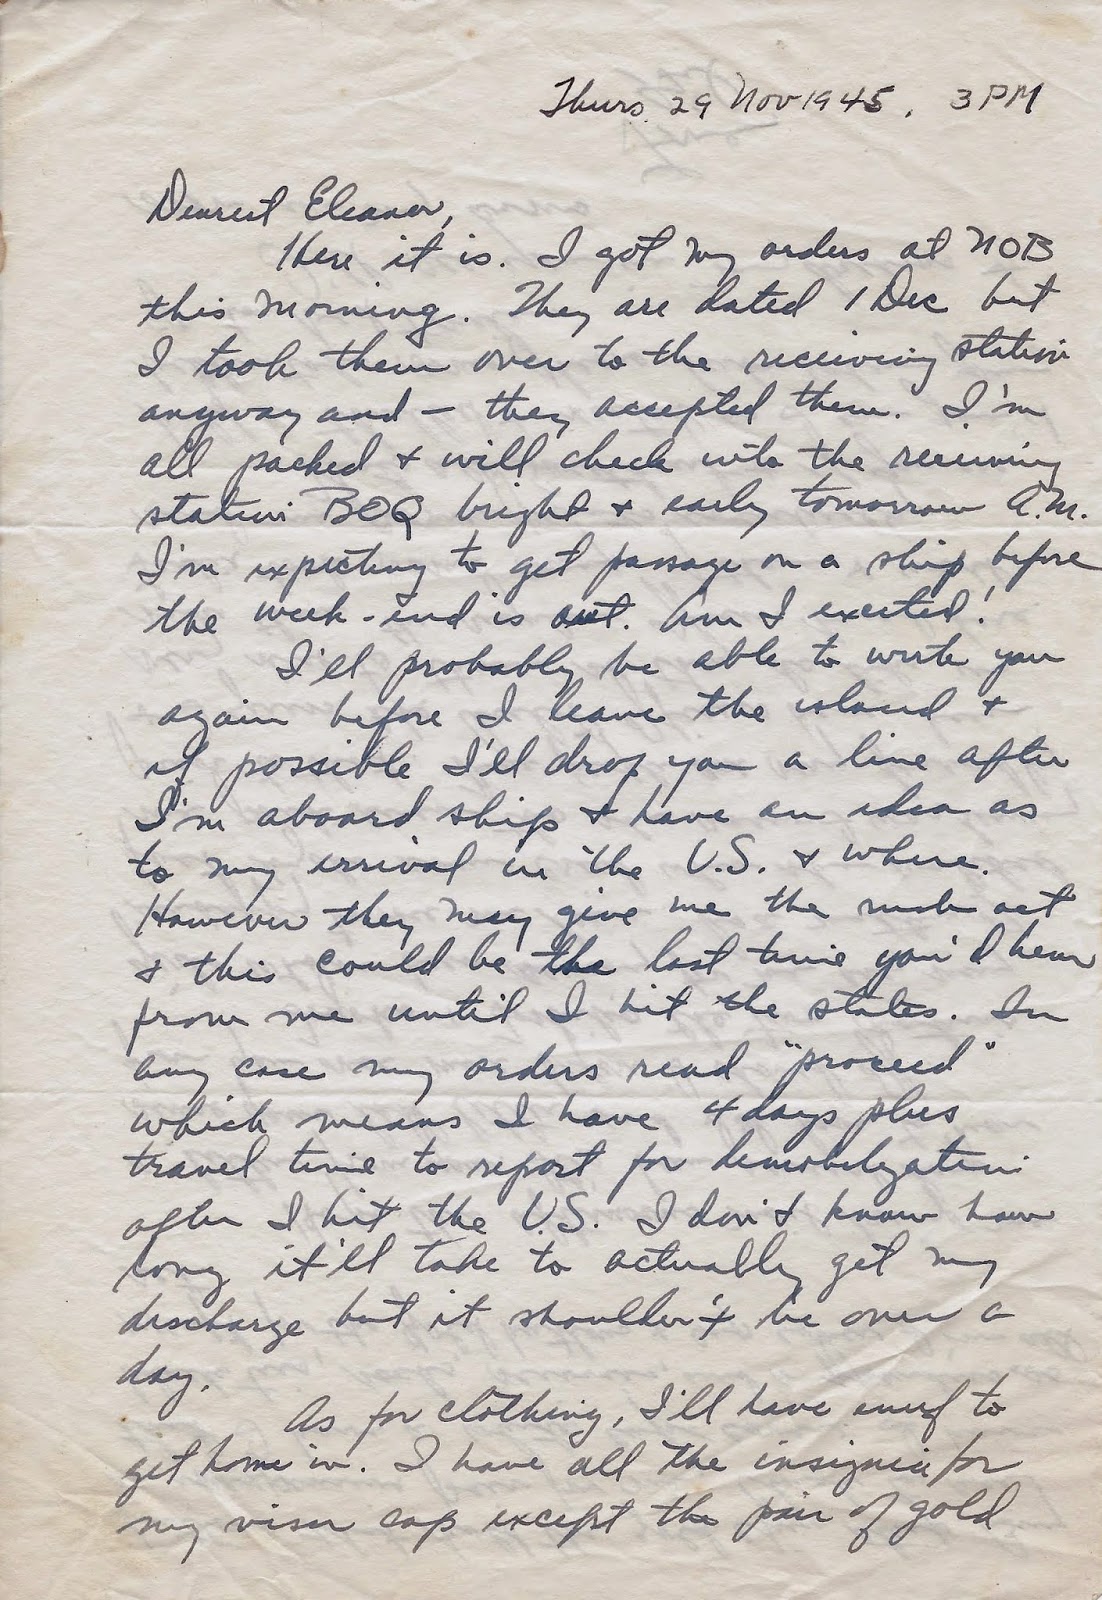 Thurs. 29 Nov 1945, 3 PM
Dearest Eleanor,
Here it is. I got my orders at NOB
this morning. They are dated 1 Dec but
I took them over to the receiving station
anyway and — they accepted them. I'm
all packed & will check into the receiving
station BOQ bright & early tomorrow A.M.
I'm expecting to get passage on a ship before
the week-end is out. Am I excited!
I'll probably be able to write you
again before I leave the island &
if possible I'll drop you a line after
I'm aboard ship & have an idea as
to my arrival in the U.S. & where.
However they may give me the rush act
& this could be the last time you'd hear
from me until I hit the states. In
any case my orders read "proceed"
which means I have 4 days plus
travel time to report for demobilization
after I hit the U.S. I don't know how
long it'll take to actually get my
discharge but it shouldn't be over a
day.
As for clothing, I'll have enuf to
get home in. I have all the insignia for
my visor cap except the pair of gold